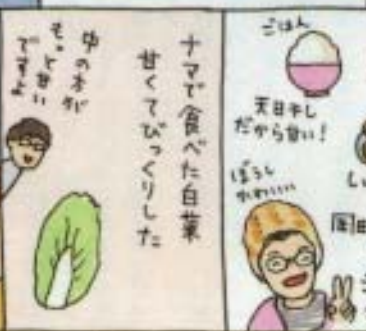 ごはん
天日干し
だから甘い!
ぼうし
かわいい
ナマで食べた白菜
甘くてびっくりした
中の方が
もっと甘い
ですよ